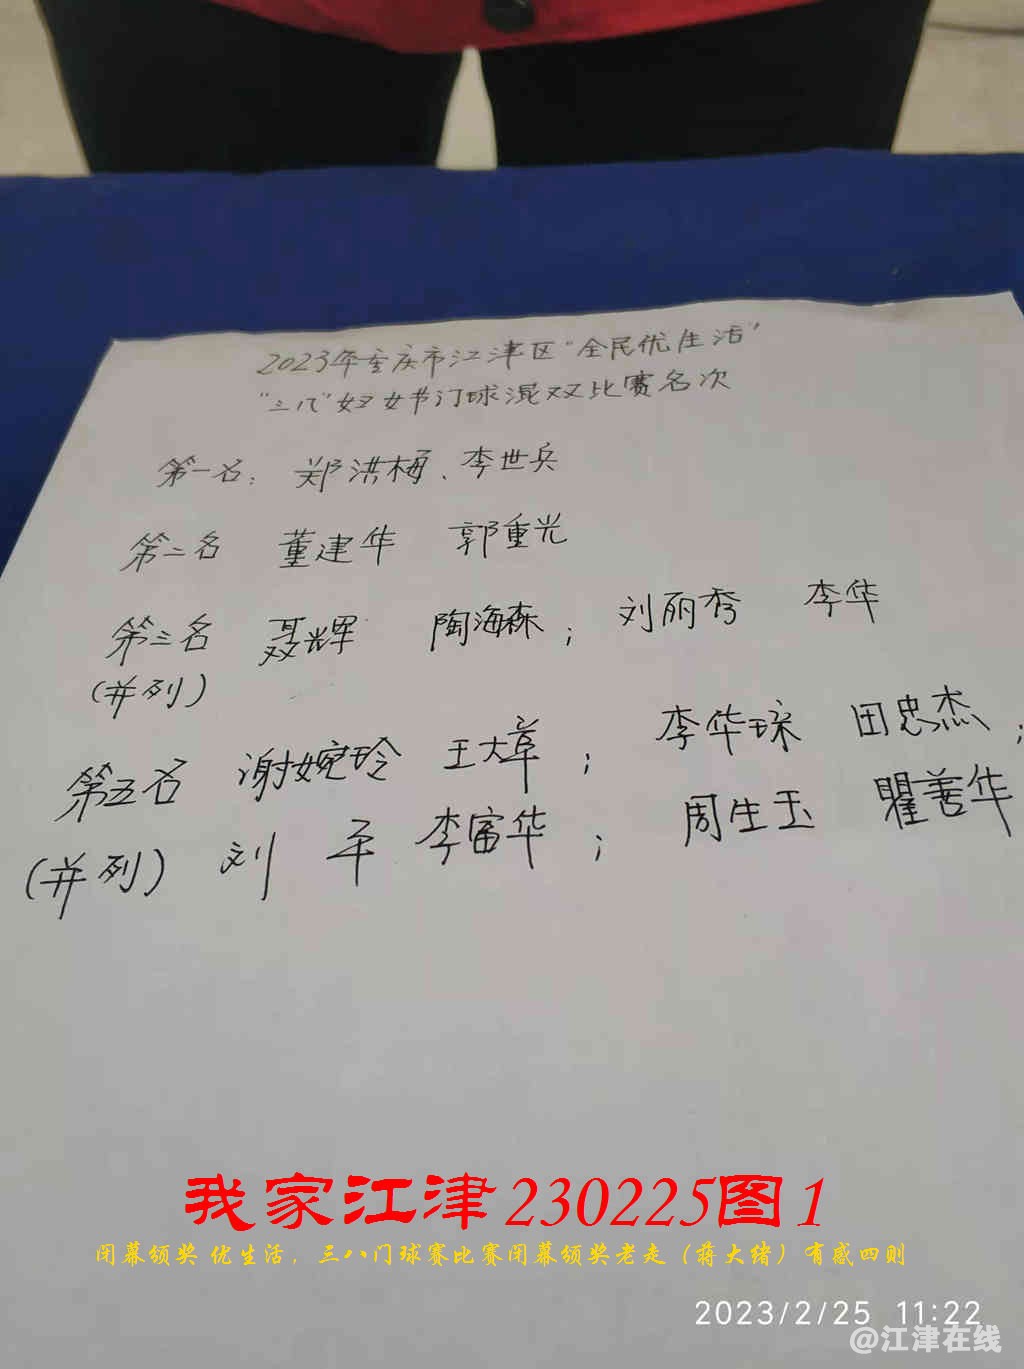 2023年重庆市江津区"全民优生活"
"三八"妇女节门球混双比赛名次
第一名: 郑洪梅、李世兵
第二名 董建华 郭重光
第三名 聂辉 陶海森; 刘丽秀 李华
(并列)
第五名 谢婉玲 王大章; 李华琛 田忠杰;
(并列) 刘平 李富华; 周生玉 瞿善华
我家江津230225图1
闭幕颁奖 优生活, 三八门球赛比赛闭幕颁奖老走(蒋大绪)有感四则
2023/2/25 11:22
@江津在线